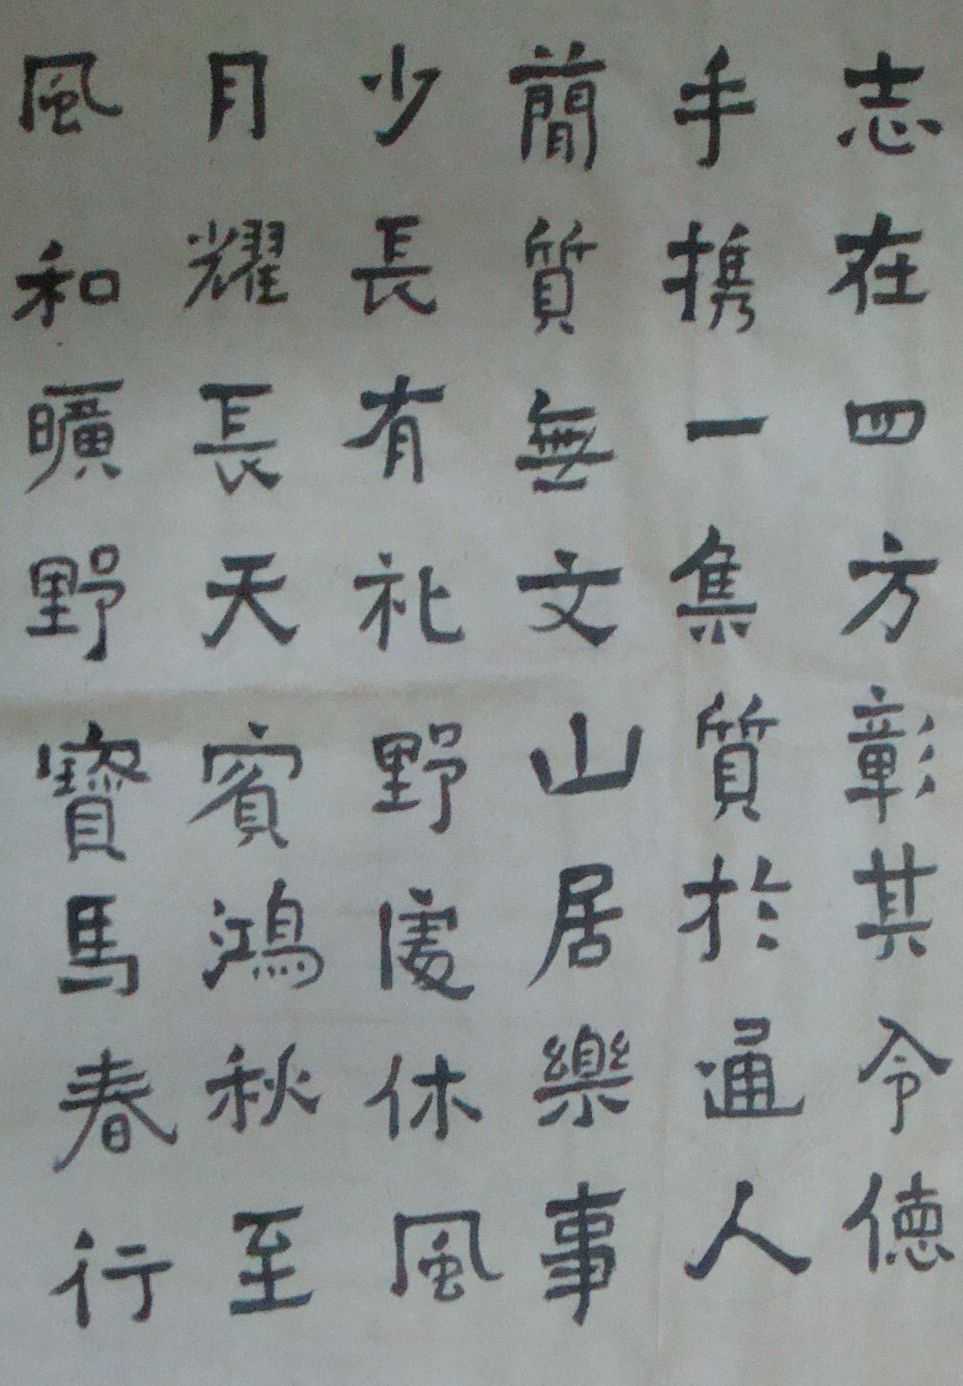 志在四方彰其令德
手携一集質於通人
簡質無文山居樂事
少長有礼野處休風
月耀長天賓鴻秋至
風和曠野寶馬春行